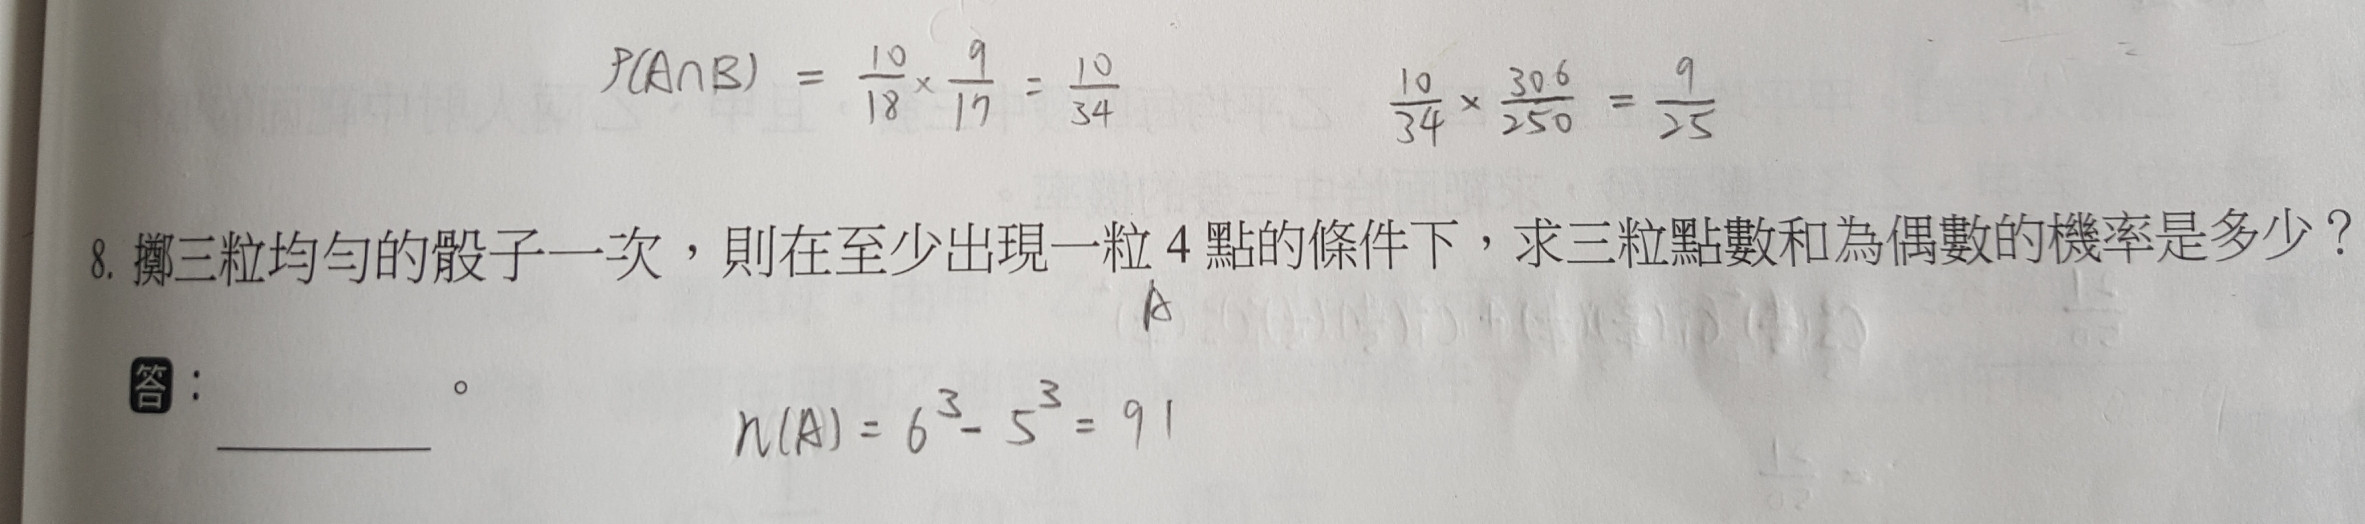 P(A∩B) = 10/18 × 9/17 = 10/34
10/34 × 306/250 = 9/25
8. 擲三粒均勻的骰子一次，則在至少出現一粒 4 點的條件下，求三粒點數和為偶數的機率是多少？
A
答：＿＿＿＿。
n(A) = 6³ - 5³ = 91